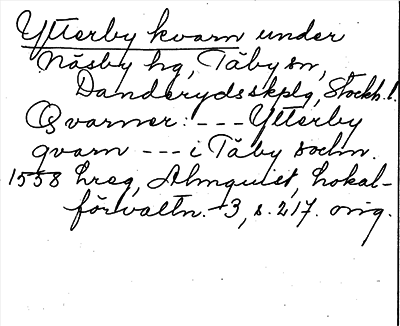 Ytterby kvarn under
Näsby hg, Täby sn,
Danderyds skplg, Stockh. l.
Qvarner: --- Ytterby
qvarn --- i Täby sochn.
1558 hreg, Almquist, Lokal-
förvaltn. 3, s. 217. orig.